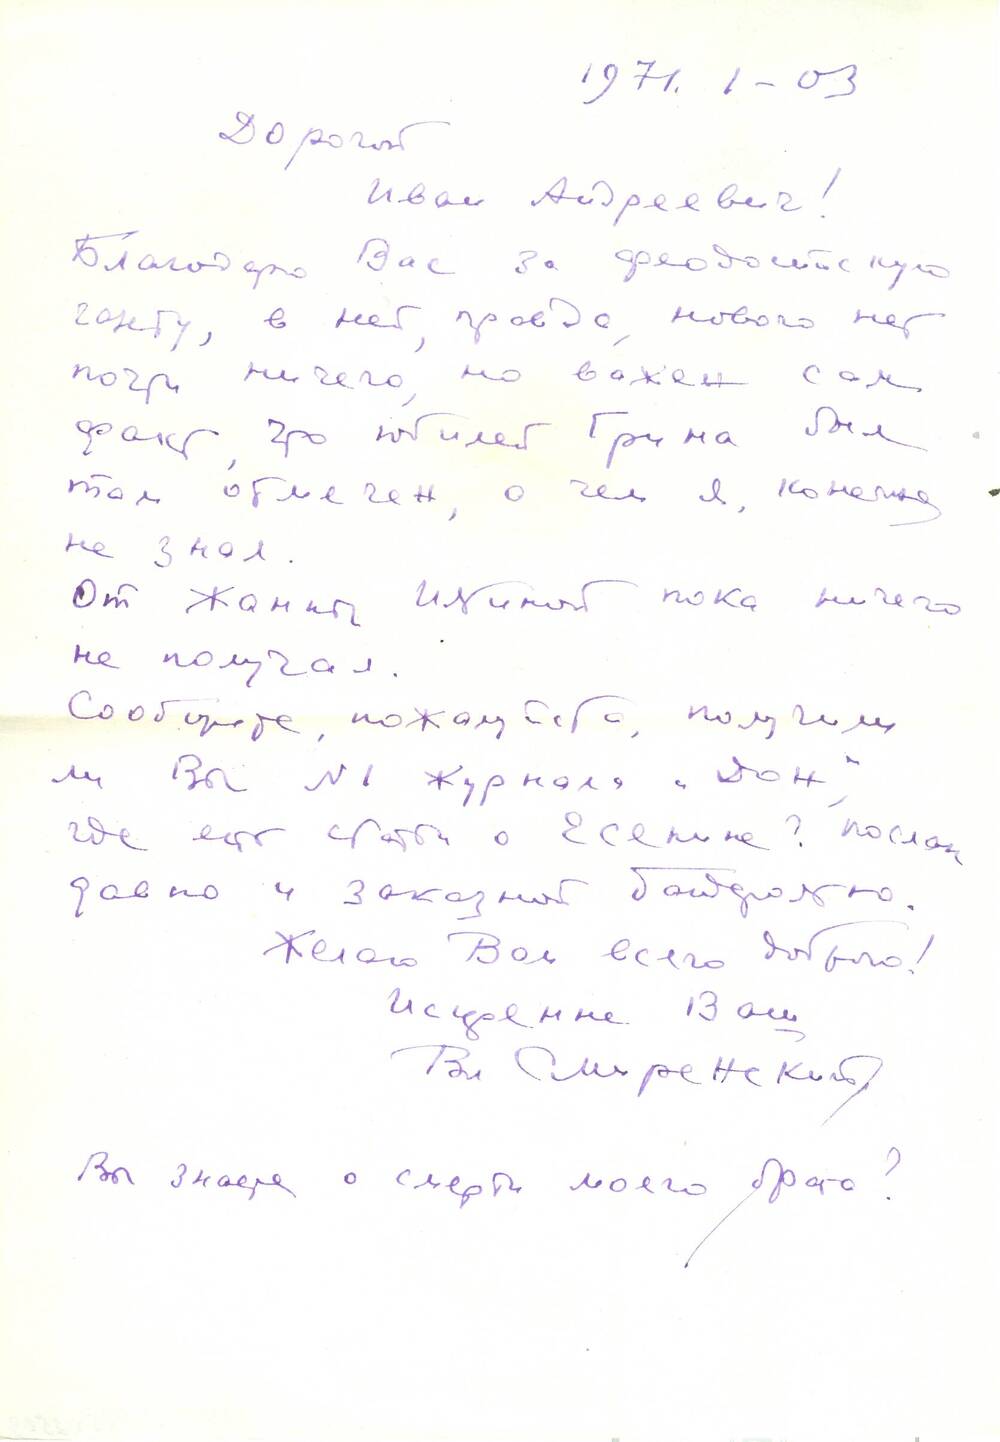 1971. 1-03
Дорогой
Иван Андреевич!
Благодарю Вас за феодосийскую
газету, в ней, правда, нового нет
почти ничего, но важен сам
факт, что юбилей Грина был
там отмечен, о чем я, конечно
не знал.
От Жанны Ильиной пока ничего
не получал.
Сообщите, пожалуйста, получили
ли Вы №1 журнала „Дон",
где есть статьи о Есенине? Послан
давно и заказной бандеролью.
Желаю Вам всего доброго!
Искренне Ваш
Вл Смиренский
Вы знаете о смерти моего брата?